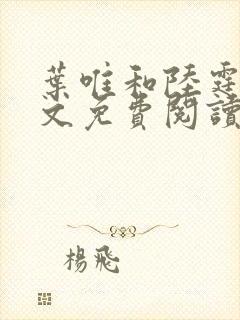 葉唯和陸霆
文免費閱讀
楊飛